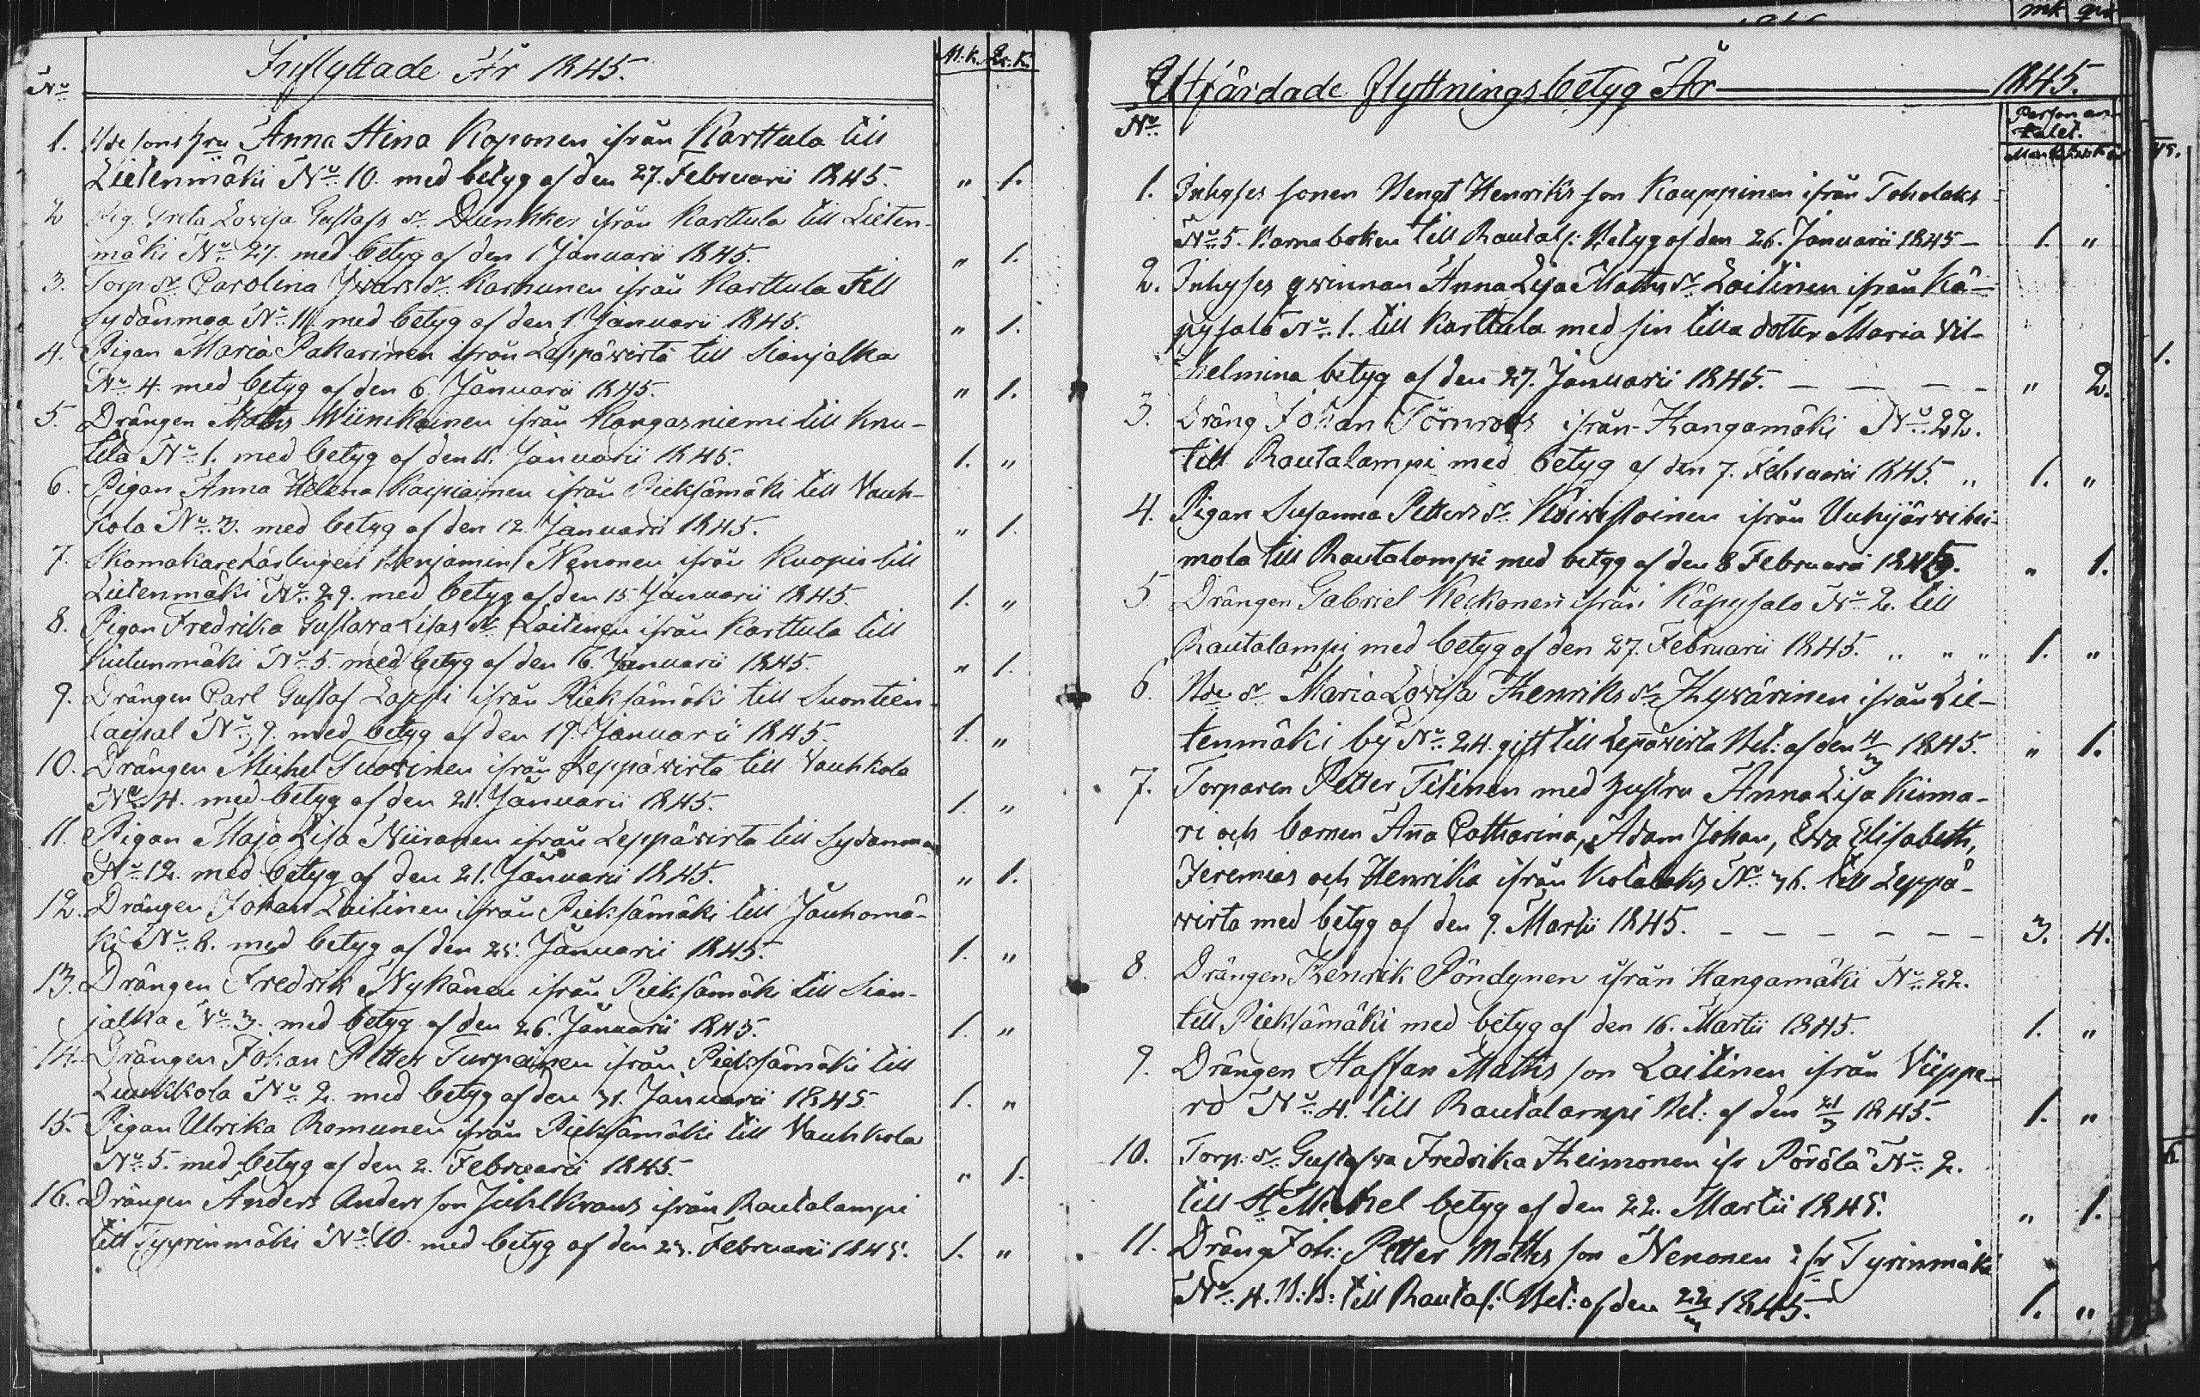 Inflyttade År 1845.
No M.k. Qv.k.
1. Bde sons hru Anna Stina Koponen ifrån Karttula till
Lietenmäki No 10. med betyg af den 27. Februarii 1845. " 1.
2 Pig. Greta Lovisa Gustafs dr Dunkker ifrån Karttula till Lieten-
mäki No 27. med betyg af den 1 Januarii 1845. " 1.
3. Torp dr Carolina Iwars dr Karhunen ifrån Karttula till
Sydänmaa No 11. med betyg af den 1 Januarii 1845. " 1.
4. Pigan Maria Pakarinen ifrån Leppävirta till Sianjalka
No 4. med betyg af den 6. Januarii 1845. " 1.
5. Drängen Maths Wiinikainen ifrån Kangasniemi till Knu-
tila No 1. med betyg af den 11. Januarii 1845. 1. "
6. Pigan Anna Helena Karpiainen ifrån Pieksämäki till Vauh-
kola No 3. med betyg af den 12. Januarii 1845. " 1.
7. Skomakare Lärlingen Benjamin Nenonen ifrån Kuopio till
Lietenmäki No 29. med betyg af den 15. Januarii 1845. 1. "
8. Pigan Fredrika Gustava Lisas dr Laitinen ifrån Karttula till
Kutunmäki No 5. med betyg af den 16. Januarii 1845. " 1.
9. Drängen Carl Gustaf Lappi ifrån Pieksämäki till Suontien-
laipal No 9. med betyg af den 19. Januarii 1845. 1. "
10. Drängen Michel Suovinen ifrån Leppävirta till Vauhkola
No 4. med betyg af den 21. Januarii 1845. 1. "
11. Pigan Maja Lisa Niiranen ifrån Leppävirta till Sydanmaa
No 12. med betyg af den 21. Januarii 1845. " 1.
12. Drängen Johan Laitinen ifrån Pieksämäki till Jauhomä-
ki No 8. med betyg af den 25. Januarii 1845. 1. "
13. Drängen Fredrik Nykänen ifrån Pieksämäki till Sian-
jalka No 3. med betyg af den 26. Januarii 1845. 1. "
14. Drängen Johan Petter Turpeinen ifrån Pieksämäki till
Luukkola No 2. med betyg af den 31. Januarii 1845. 1. "
15. Pigan Ulrika Romunen ifrån Pieksämäki till Vauhkola
No 5. med betyg af den 2. Februarii 1845. " 1.
16. Drängen Anders Anders son Juhlkrans ifrån Rautalampi
till Tyyrinmäki No 10. med betyg af den 23. Februarii 1845. 1. "
Utfärdade flyttningsbetyg År 1845.
No Person an-
talet.
1. Inhyses sonen Bengt Henriks son Kauppinen ifrån Toholaks
No 5. Barnaboken till Rautal: Betyg af den 26. Januarii 1845 1. "
2. Inhyses qvinnan Anna Lisa Maths dr Laitinen ifrån Kä-
pysalo No 1. till Karttula med sin lilla dotter Maria Vil-
helmina betyg af den 27. Januarii 1845. " 2.
3. Dräng Johan Törnroos ifrån Hangamäki No 22.
till Rautalampi med betyg af den 7. Februarii 1845. " 1. "
4. Pigan Susanna Petters dr Kuivistoinen ifrån Vuhijärvihei-
mola till Rautalampi med betyg af den 8 Februarii 1845. " 1.
5 Drängen Gabriel Keckonen ifrån Käpysalo No 2. till
Rautalampi med betyg af den 27. Februarii 1845. " " " 1. "
6. Bde dr Maria Lovisa Henriks dr Hyvärinen ifrån Lie-
tenmäki by No 24. gift till Lepävirta Bet: af den 4/3 1845. " 1.
7. Torparen Petter Titinen med hustru Anna Lisa Kiima-
ri och barnen Aña Catharina, Adam Johan, Eva Elisabeth,
Jeremias och Henrika ifrån Kolalaks No 36. till Leppä-
virta med betyg af den 9. Martii 1845. 3. 4.
8. Drängen Henrik Pöndynen ifrån Hangamäki No 22.
till Pieksämäki med betyg af den 16. Martii 1845. 1. "
9. Drängen Staffan Maths son Laitinen ifrån Vieppe-
ro No 4. till Rautalampi Bet: af den 21/3 1845. 1. "
10. Torp. dr Gustafva Fredrika Heimonen ifr Pörölä No 2.
till St Michel betyg af den 22. Martii 1845. " 1.
11. Dräng Joh: Petter Maths son Nenonen ifr Tyrinmäki
No 4. B:B: till Rautal: Bet: af den 22/3 1845. 1. "